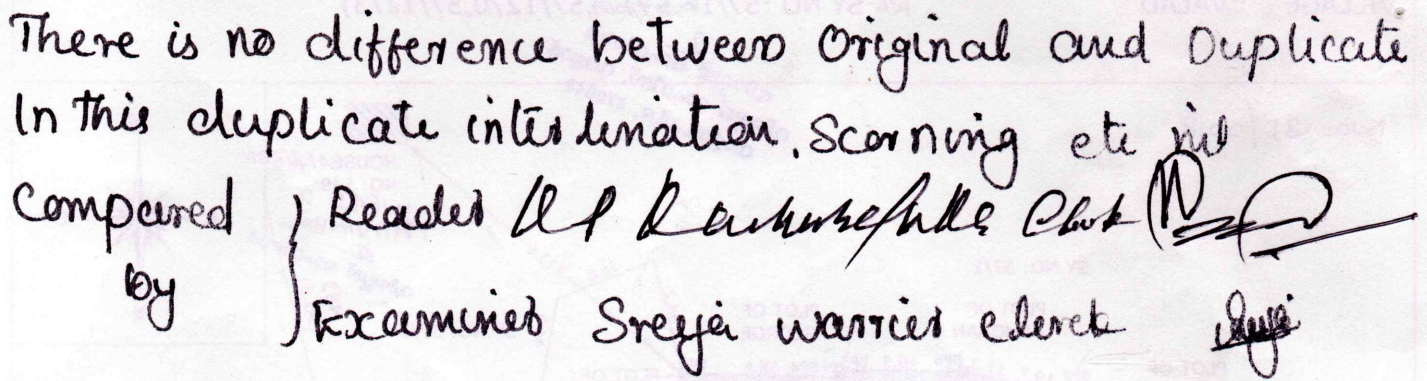 There is no difference between Original and Duplicate
In this duplicate interlineation, Scorning etc nil
Compared by } Reader Clerk
Examiner Sreeja warrier clerk